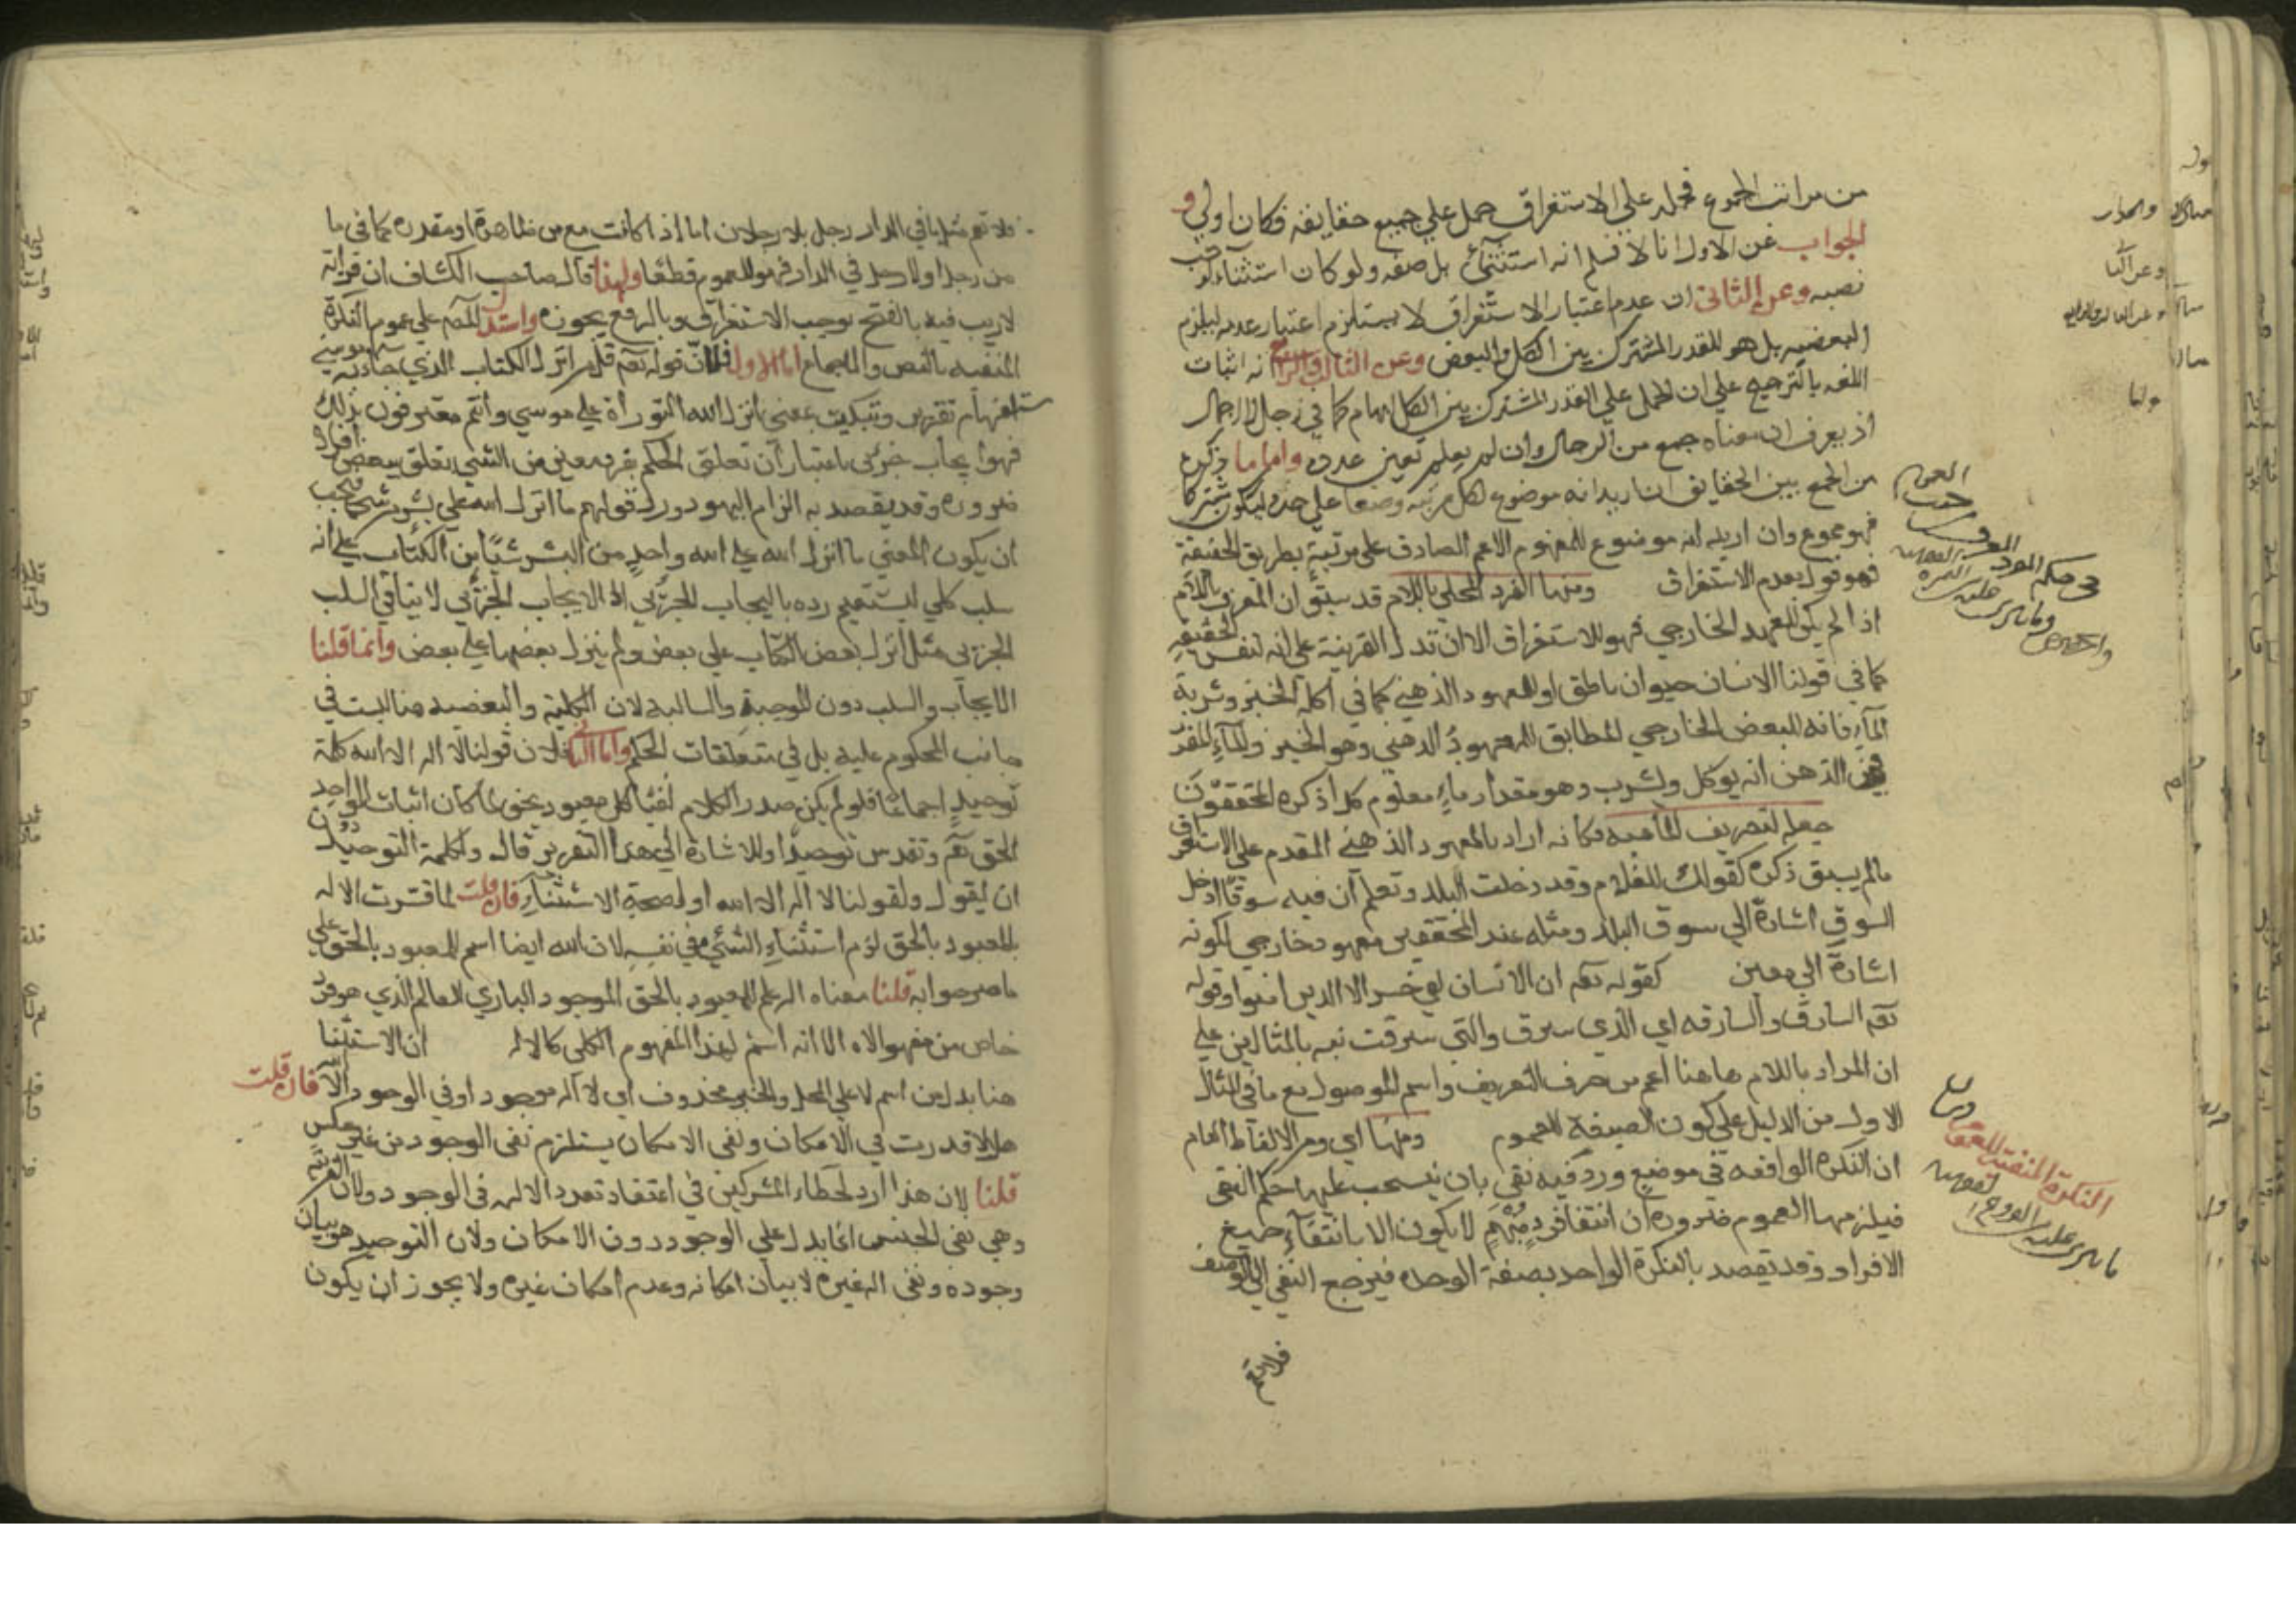 من مراتب الجموع فحمله علي الاستغراق حمل علي جميع حقايقه فكان اولي و
الجواب عن الاول انا لا نسلم انه استثناء بل صفه ولو كان استثناء لوجب
نصبه وعن الثاني ان عدم اعتبار الاستغراق لا يستلزم اعتبار عدمه ليلزم
البعضيه بل هو للقدر المشترك بين الكل والبعض وعن الثالث والرابع انه اثبات
اللغه بالترجيح علي ان الحمل علي القدر المشترك بين الكل ابهام كما في رجال لا اجمال
اذ يعرف ان معناه جمع من الرجال وان لم يعلم تعين عدده واما ما ذكره
من الجمع بين الحقايق ان اريد انه موضوع لكل مرتبه وضعا علي حده ليكون مشتركا
فهو ممنوع وان اريد انه موضوع للمفهوم الاعم الصادق علي مرتبة بطريق الحقيقة
فهو قول بعدم الاستغراق ومنها المفرد المحلي باللام قد سبق ان المعرف باللام
اذا لم يكن للعهد الخارجي فهو للاستغراق الا ان تدل القرينة علي انه لنفس الحقيقة
كما في قولنا الانسان حيوان ناطق او للمعهود الذهني كما في اكله الخبز وشربه
المآء فانه للبعض الخارجي المطابق للمعهود الذهني وهو الخبز والمآء المقرر
في الذهن انه يوكل ويشرب وهو مقدار ماء معلوم كذا ذكره المحققون
جعله لتعريف الماهيه فكانه اراد بالمعهود الذهني المقدم علي الاستغراق
مالم يسبق ذكره كقولك للغلام وقد دخلت البلد وتعلم ان فيه سوقا ادخل
السوق اشارة الي سوق البلد ومثله عند المحققين معهود خارجي لكونه
اشارة الي معين كقوله تعم ان الانسان لفي خسر الا الذين امنوا وقوله
تعم السارق والسارقه اي الذي سرق والتي سرقت نبه بالمثالين علي
ان المراد باللام هاهنا اعم من حرف التعريف واسم الموصول مع ما في المثال
الاول من الدليل علي كون الصيغه للعموم ومنها اي ومن الالفاظ العام
ان النكره الواقعه في موضع ورد فيه نفي بان ينسحب عليها حكم النفي
فيلزمها العموم ضروره ان انتفا فرد مبهم لا يكون الا بانتفاء جميع
الافراد وقد يقصد بالنكرة الواحد بصفة الوحده فيرجع النفي الي الوصف
فلا تعم
النكرة المنفية للعموم
فلا تعم مثل ما في الدار رجل بل رجلان اما اذا كانت مع من ظاهرة او مقدره كما في ما
من رجل او لا رجل في الدار فهو للعموم قطعا ولهذا قال صاحب الكشاف ان قراة
لا ريب فيه بالفتح توجب الاستغراق وبالرفع يجوزه واستدل المص علي عموم النكرة
المنفيه بالنص والاجماع اما الاول فلان قوله تعم قل من انزل الكتاب الذي جاء به موسي
استفهام تقرير وتبكيت بمعني انزل الله التوراة علي موسي وانتم معترفون بذلك
فهو ايجاب جزئي باعتبار ان تعلق الحكم بفرد معين من الشي تعلق ببعض افراده
ضروره وقد يقصد به الزام اليهود ورد قولهم ما انزل الله علي بشر من شي فيجب
ان يكون المعني ما انزل الله علي واحد من البشر شيًا من الكتاب علي انه
سلب كلي ليستقيم رده بالايجاب الجزئي اذ الايجاب الجزئي لا ينافي السلب
الجزئي مثل انزل بعض الكتاب علي بعض ولم ينزل بعضها علي بعض وانما قلنا
الايجاب والسلب دون الموجبة والسالبه لان الكلية والبعضيه هنا ليست في
جانب المحكوم عليه بل في متعلقات الحكم واما الثاني فلان قولنا لا اله الا الله كلمة
توحيد اجماعًا فلو لم يكن صدر الكلام نفيًا لكل معبود بحق لما كان اثبات الواحد
الحق تعم وتقدس توحيدا وللاشارة الي هذا التقرير قال ولكلمة التوحيد دون
ان يقول ولقولنا لا اله الا الله او لصحة الاستثناء فان قلت لما قسرت الاله
بالمعبود بالحق لزم استثناء الشئ من نفسه لان الله ايضا اسم للمعبود بالحق علي
ما صرحوا به قلنا معناه انه علم للمعبود بالحق الموجود الباري للعالم الذي هو فرد
خاص من مفهوم الاله لا انه اسم لهذا المفهوم الكلي كالاله ان الاستثنا
هنا بدل من اسم لا علي المحل والخبر محذوف اي لا اله موجود او في الوجود الا فان قلت
هلا قدرت في الامكان ونفي الامكان يستلزم نفي الوجود من غير عكس
قلنا لان هذا رد لخطاء المشركين في اعتقاد تعدد الالهه في الوجود ولان القرينة
وهي نفي الجنس انما يدل علي الوجود دون الامكان ولان التوحيد هو بيان
وجوده ونفي اله غيره لا بيان امكانه وعدم امكان غيره ولا يجوز ان يكون